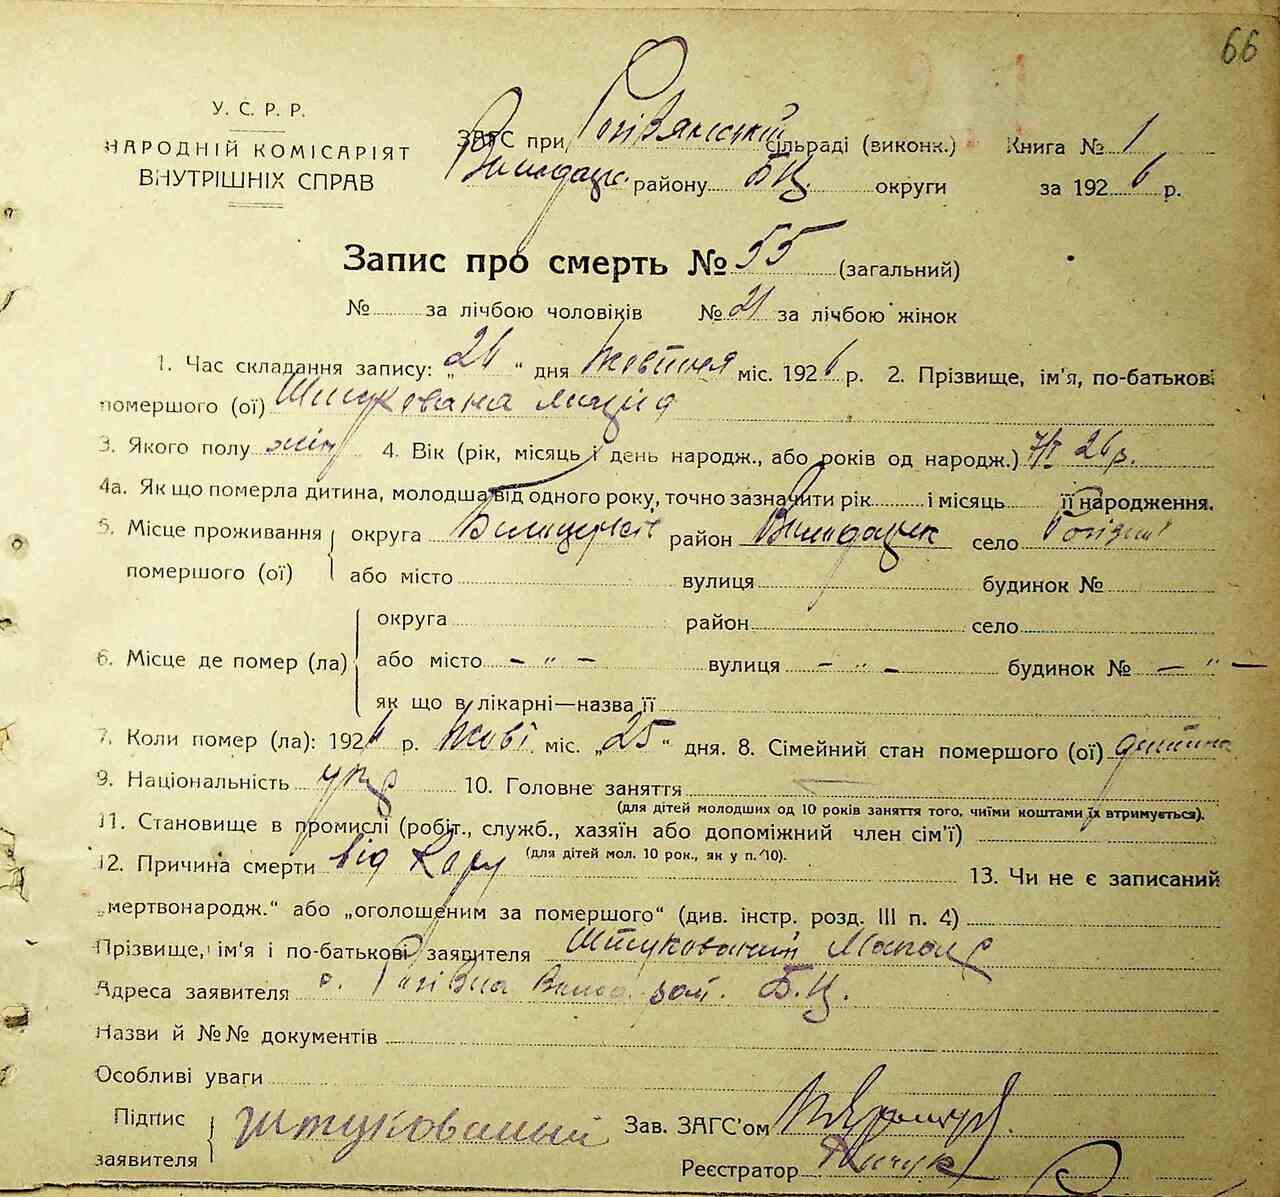 66
У. С. Р. Р.
НАРОДНІЙ КОМІСАРІЯТ
ВНУТРІШНІХ СПРАВ
ЗАГС при сільраді (виконк.) Книга № 1
району Б.Ц. округи за 1926 р.
Запис про смерть № 55 (загальний)
№ за лічбою чоловіків № 21 за лічбою жінок
1. Час складання запису: „26“ дня Жовтня міс. 1926 р. 2. Прізвище, ім'я, по-батькові
помершого (ої) Штукована
3. Якого полу жін 4. Вік (рік, місяць і день народж., або років од народж.) 26 р.
4а. Як що померла дитина, молодша від одного року, точно зазначити рік і місяць її народження.
5. Місце проживання округа район село
помершого (ої) або місто вулиця будинок №
округа район село
6. Місце де помер (ла) або місто – „ – вулиця – „ – будинок № – „ –
як що в лікарні—назва її
7. Коли помер (ла): 1926 р. Жовт міс. „25“ дня. 8. Сімейний стан помершого (ої) дитина
9. Національність укр 10. Головне заняття
(для дітей молодших од 10 років заняття того, чиїми коштами їх втримується).
11. Становище в промислі (робіт., служб., хазяїн або допоміжний член сім'ї)
(для дітей мол. 10 рок., як у п. 10).
12. Причина смерти від Кору 13. Чи не є записаний
„мертвонародж.“ або „оголошеним за помершого“ (див. інстр. розд. III п. 4)
Прізвище, ім'я і по-батькові заявителя Штукований
Адреса заявителя с. Б.Ц.
Назви й №№ документів
Особливі уваги
Підпис заявителя Штукований Зав. ЗАГС'ом
Реєстратор